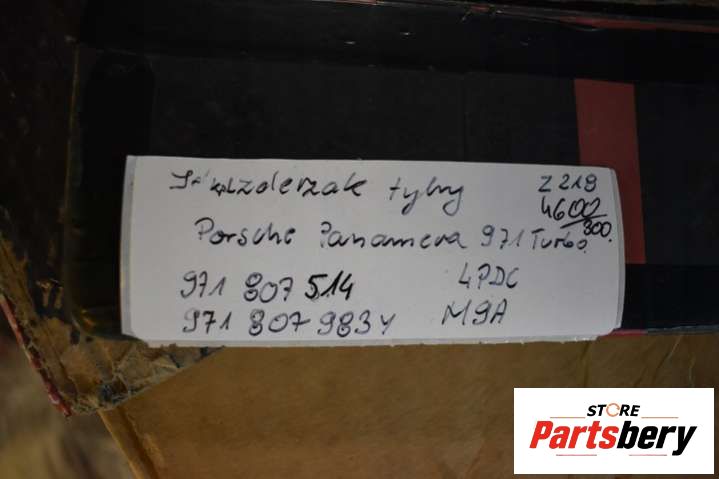 kpl zderzak tylny Z219
4600/300.
Porsche Panamera 971 Turbo
971 807 514 4PDC
971 807 983Y M9A
STORE
Partsbery